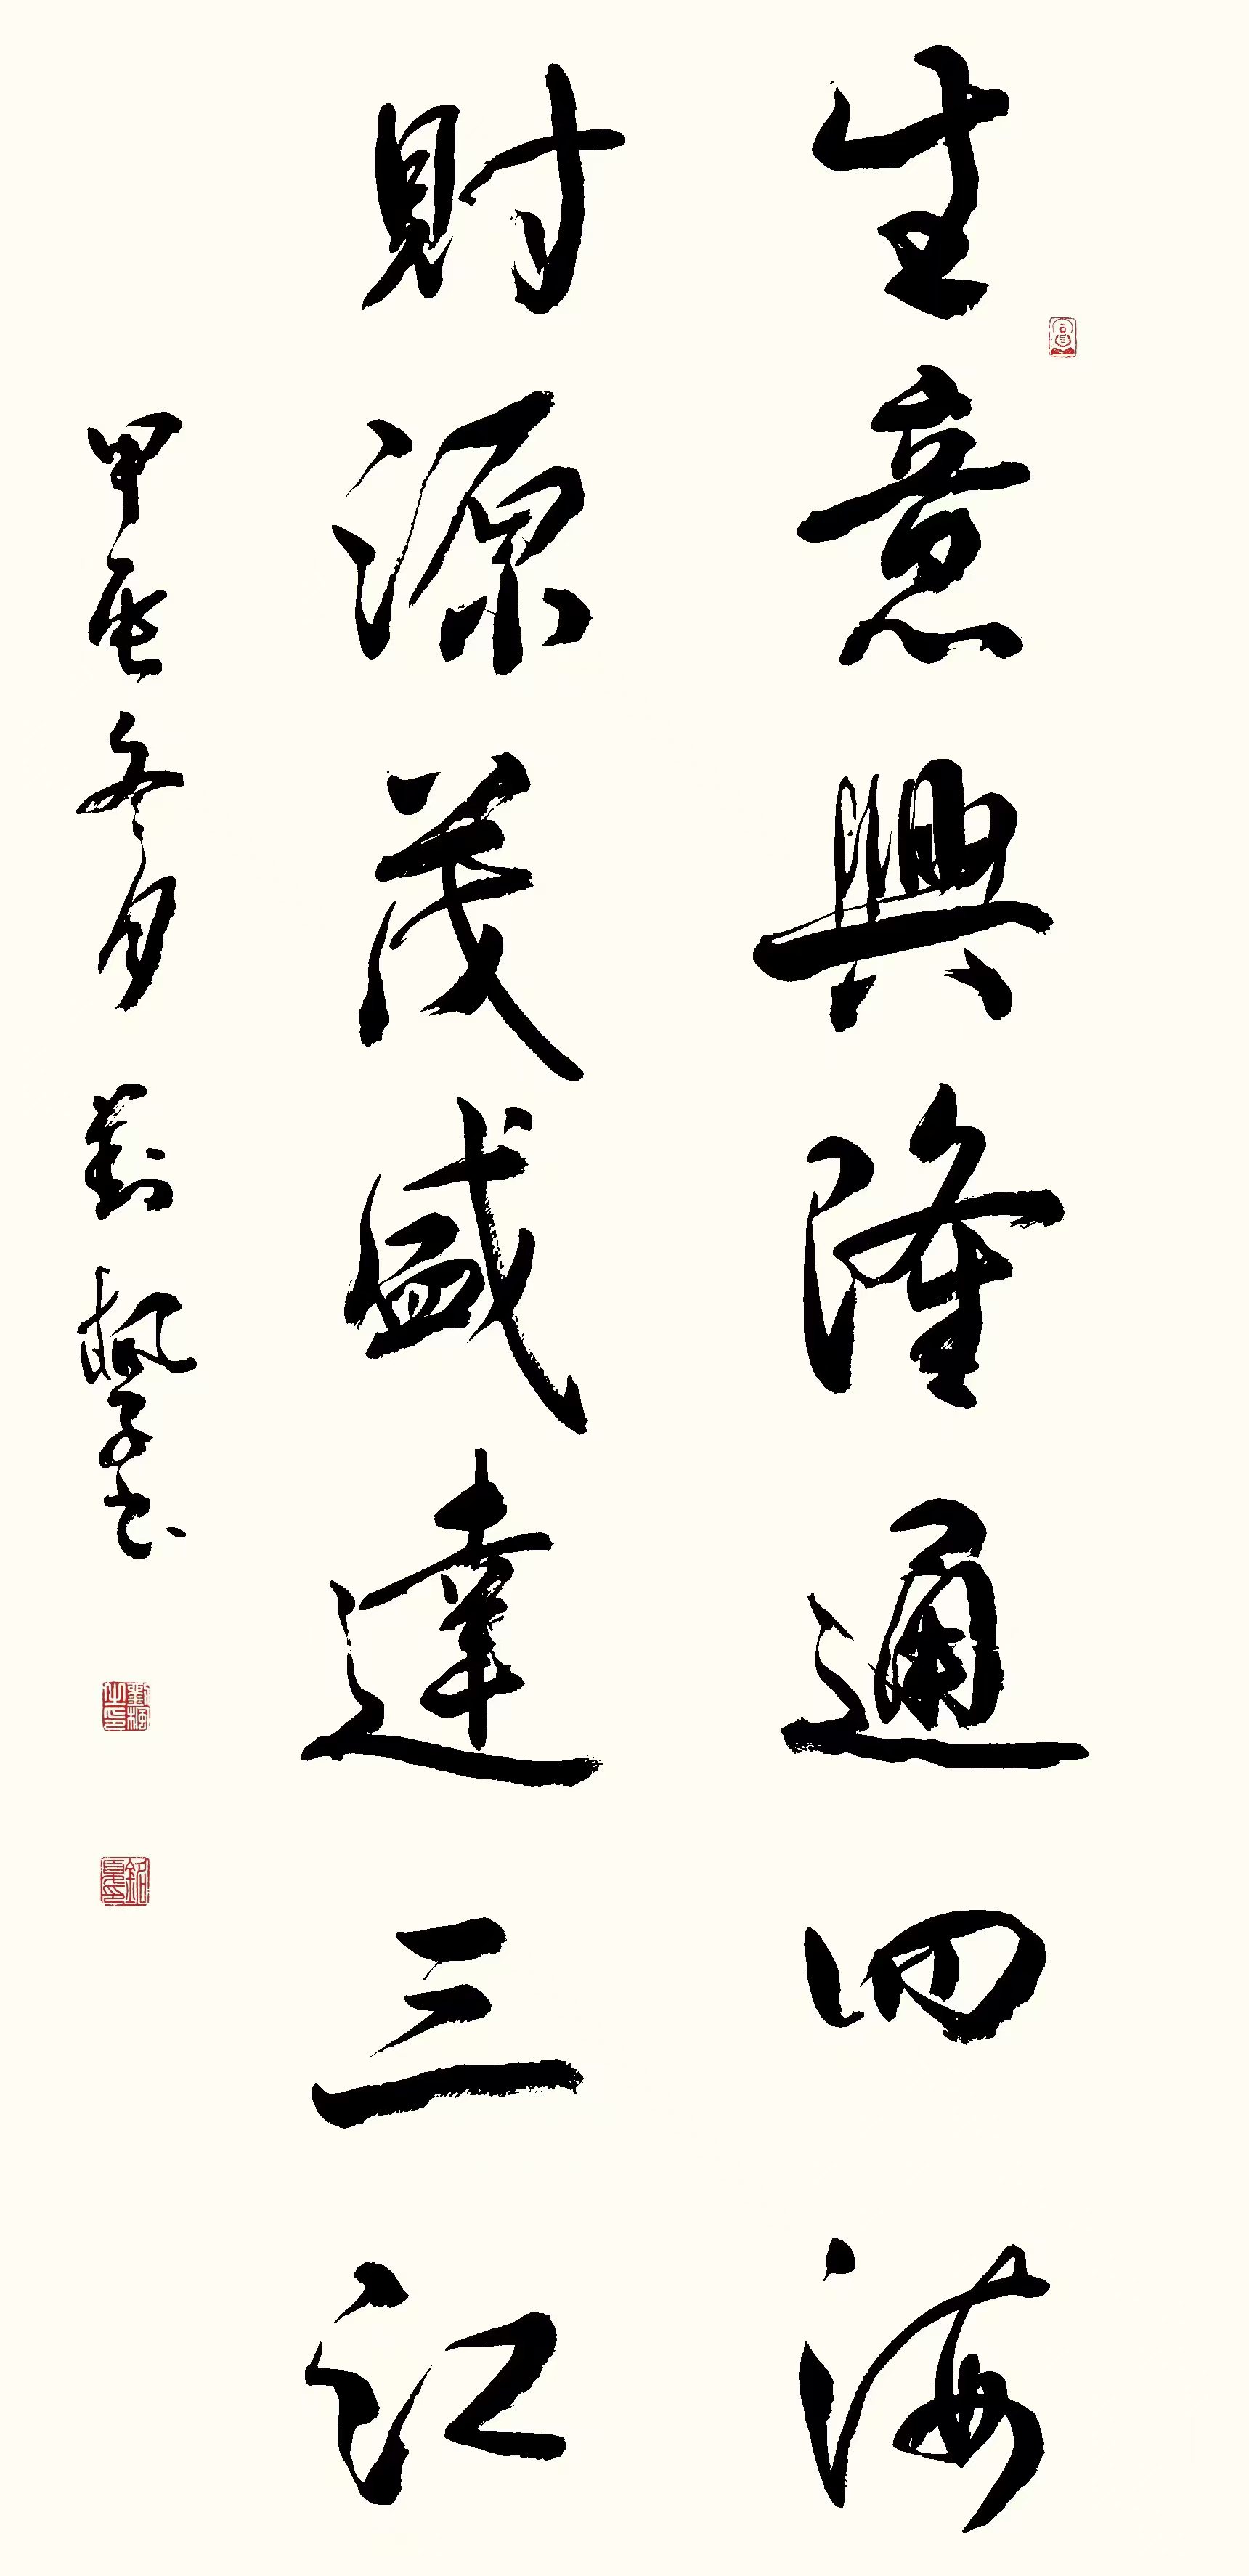 生意興隆通四海
財源茂盛達三江
甲辰冬月 劉楓子書